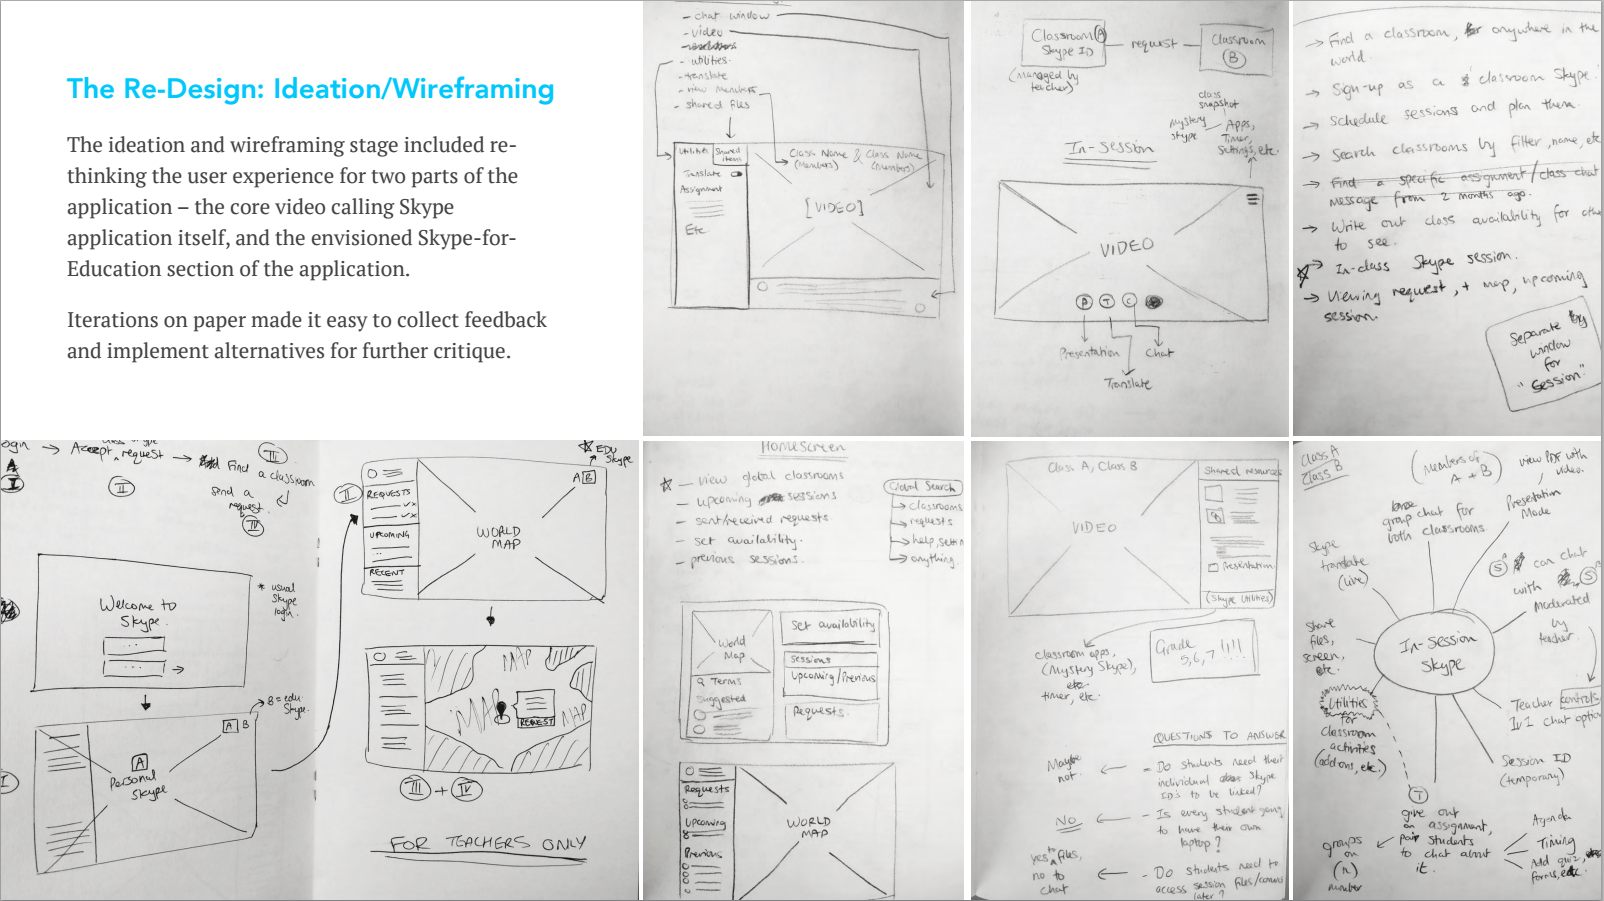 The Re-Design: Ideation/Wireframing
The ideation and wireframing stage included re-
thinking the user experience for two parts of the
application – the core video calling Skype
application itself, and the envisioned Skype-for-
Education section of the application.
Iterations on paper made it easy to collect feedback
and implement alternatives for further critique.
- chat window
- video
- utilities
- translate
- view members
- shared files
Utilities
Shared
items
Translate
Assignment
Etc
Class Name & Class Name
(Members) (members)
[VIDEO]
Classroom A
Skype ID
request
Classroom
B
(managed by
teacher)
class
snapshot
Mystery
Skype
Apps,
Timer,
Settings, etc.
In-session
VIDEO
P T C
Presentation
Chat
Translate
→ Find a classroom, anywhere in the
world.
→ Sign-up as a classroom Skype.
→ Schedule sessions and plan them.
→ Search classrooms by filter, name, etc
→ Find a specific assignment/class chat
message from 2 months ago.
→ Write out class availability for othe
to see.
→ In-class Skype session.
→ Viewing request, + map, upcoming
session.
Separate
window
for
"Session"
ogin → Accept request →
Find a classroom
send a
request
I
II
III
IV
Welcome to
Skype.
* usual
Skype
login.
8 = edu
Skype.
A B
A
Personal
Skype
I
II
EDU
Skype
A B
REQUESTS
UPCOMING
RECENT
WORLD
MAP
MAP
MAP
MAP
REQUEST
III + IV
FOR TEACHERS ONLY
HomeScreen
- view global classrooms
- upcoming sessions
- sent/received requests.
- set availability.
- previous sessions.
Global Search
→ classrooms
→ requests
→ help, settin
→ anything.
World
Map
Terms
Suggested
Set availability
Sessions
Upcoming/Previous
Requests.
Requests
Upcoming
Previous
WORLD
MAP
Class A, Class B
VIDEO
Shared resources
Presentation
(Skype Utilities)
classroom apps,
(Mystery Skype),
etc
timer, etc.
Grade
5, 6, 7 !!!!
QUESTIONS TO ANSWER
Maybe
not.
- Do students need their
individual Skype
ID's to be linked?
NO
- Is every student going
to have their own
laptop?
yes to files,
no to
chat
- Do students need to
access session files/
later?
Class A
Class B
(members of
A + B)
view PDF with
video.
Presentation
Mode
group chat for
both classrooms
Skype
translate
(Live)
S can chat
with S
Moderated
by
teacher
share
files,
screen,
etc.
In-session
Skype
Utilities
for
classroom
activities
(addons, etc.)
Teacher controls
1v1 chat option
Session ID
(temporary)
T
give out
an assignment,
pair students
to chat about
it.
groups
on
(n)
number
Agenda
Timing
Add quiz,
forms, etc.